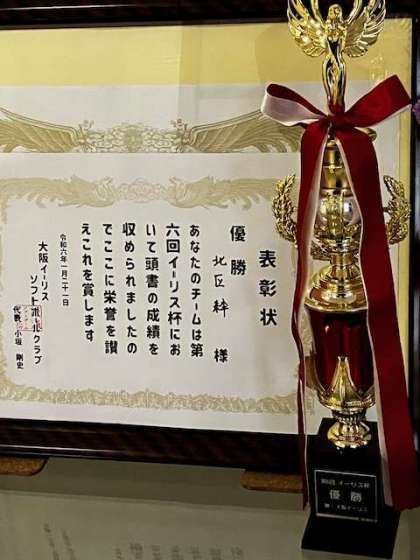 表彰状
優勝
北区絆 様
あなたのチームは第
六回イーリス杯にお
いて頭書の成績を
収められましたの
でここに栄誉を讃
えこれを賞します
令和六年一月二十一日
大阪イーリス
ソフトボールクラブ
代表 小坂 剛史
イーリス杯
優勝
大阪イーリス